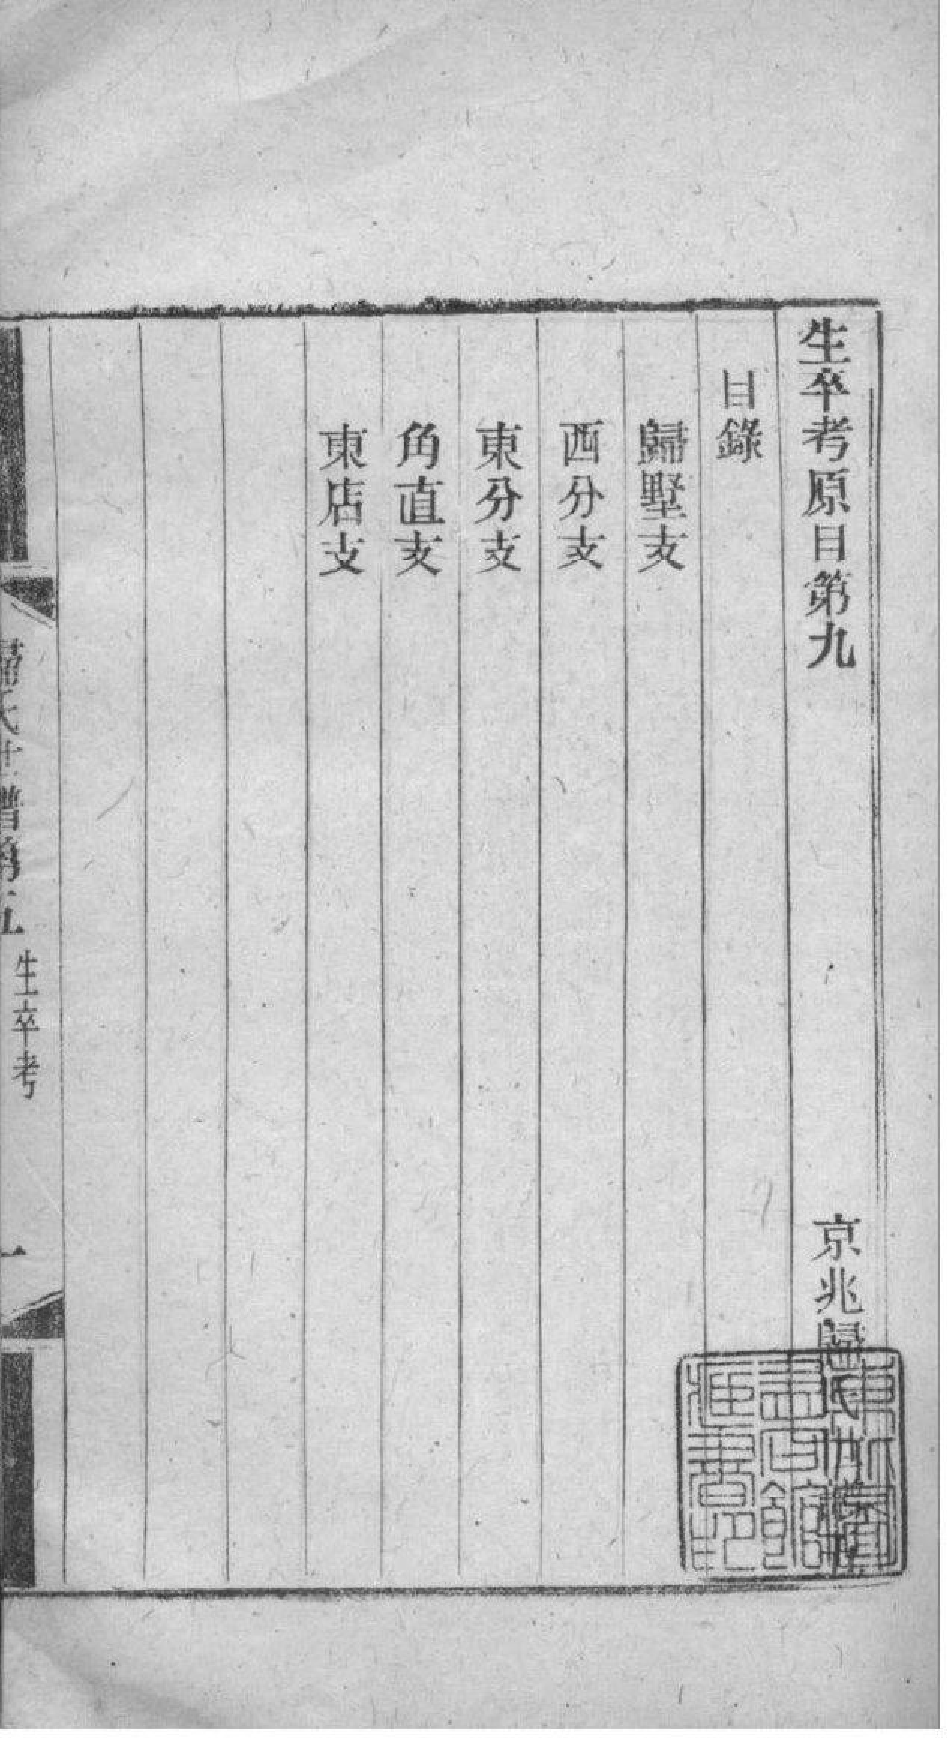 生卒考原目第九
京兆歸氏世譜
目錄
歸墅支
西分支
東分支
角直支
東店支
歸氏世譜第九
生卒考
一